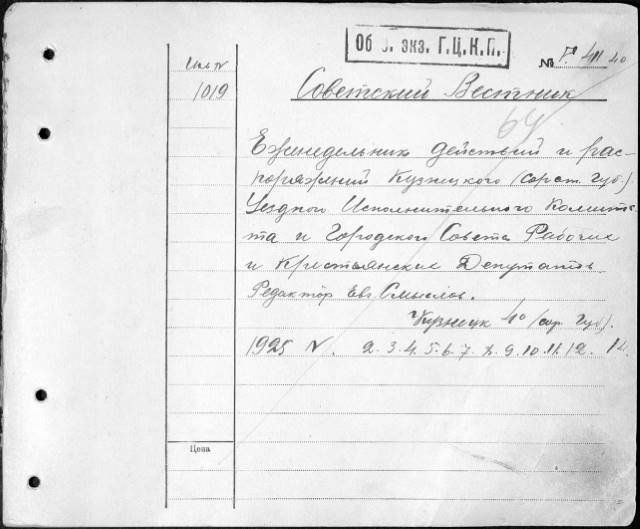 Об. экз. Г.Ц.К.П.
№ Г. 411 40
Инв №
1019
Советский Вестник
64
Еженедельник действий и рас-
поряжений Кузнецкого (сарат. Губ.)
Уездного Исполнительного Комите-
та и Городского Совета Рабочих
и Крестьянских Депутатов
Редактор Евг Смыслов.
Кузнецк 4° (сар. Губ).
1925 N. 2. 3. 4. 5. 6. 7. 8. 9. 10. 11. 12. 14
Цена